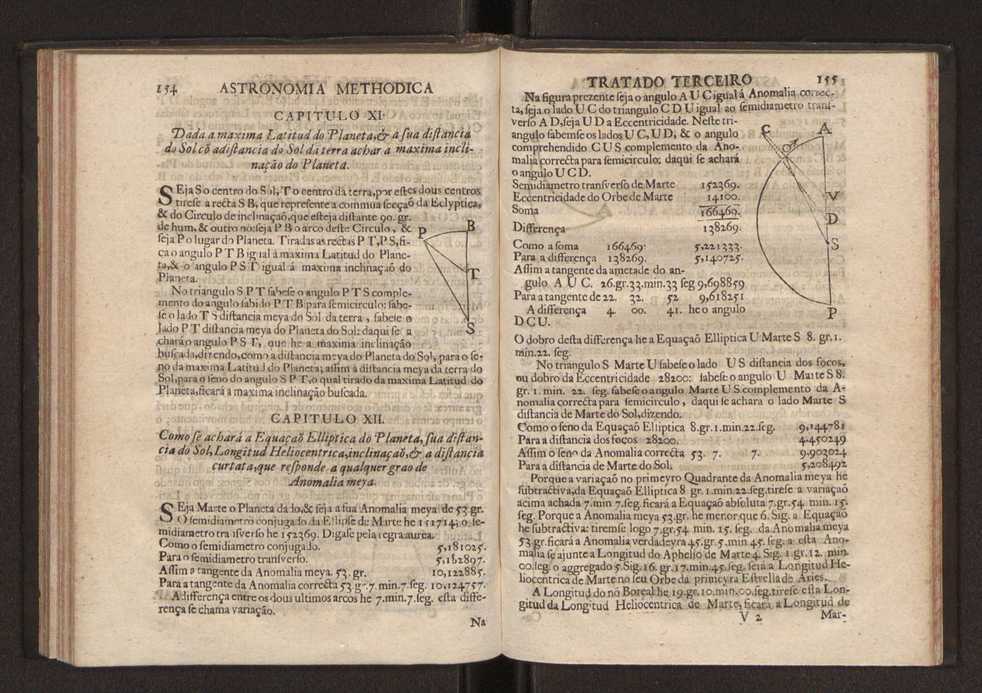 154 ASTRONOMIA METHODICA
CAPITULO XI.
Dada a maxima Latitud do Planeta,& a sua distancia
do Sol cõ adistancia do Sol da terra achar a maxima incli-
nação do Planeta.
SEja S o centro do Sol, T o centro da terra, por estes dous centros
tirese a recta S B, que represente a commua secçaõ da Eclyptica,
& do Circulo de inclinaçaõ, que esteja distante 90. gr.
de hum, & outro no: seja P B o arco deste Circulo, &
seja P o lugar do Planeta. Tiradas as rectas P T, P S, fi-
ca o angulo P T B igual á maxima Latitud do Plane-
ta, & o angulo P S T igual á maxima inclinaçaõ do
Planeta.
No triangulo S P T sabese o angulo P T S comple-
mento do angulo sabido P T B para semicirculo: sabe-
se o lado T S distancia meya do Sol da terra, sabese o
lado P T distancia meya do Planeta do Sol: daqui se
achará o angulo P S T, que he a maxima inclinação
buscada, dizendo, como a distancia meya do Planeta do Sol, para o se-
no da maxima Latitud do Planeta; assim a distancia meya da terra do
Sol, para o seno do angulo S P T, o qual tirado da maxima Latitud do
Planeta, ficará a maxima inclinação buscada.
P
B
T
S
CAPITULO XII.
Como se achará a Equaçaõ Elliptica do Planeta, sua distan-
cia do Sol, Longitud Heliocentrica, inclinaçaõ, & a distancia
curtata, que responde a qualquer grao de
Anomalia meya.
SEja Marte o Planeta dado, & seja a sua Anomalia meya de 53. gr.
O semidiametro conjugado da Ellipse de Marte he 151714; o se-
midiametro transverso he 152369. Digase pela regra aurea.
Como o semidiametro conjugado. 5,181025.
Para o semidiametro transverso. 5,182897.
Assim a tangente da Anomalia meya. 53. gr. 10,122885.
Para a tangente da Anomalia correcta 53 gr. 7. min. 7. seg. 10,124757.
A differença entre os dous ultimos arcos he 7.min.7.seg. esta diffe-
rença se chama variação.
Na
TRATADO TERCEIRO 155
Na figura prezente seja o angulo A U C igual á Anomalia correc-
ta, seja o lado U C do triangulo C D U igual ao semidiametro trans-
verso A D, seja U D a Eccentricidade. Neste tri-
angulo sabemse os lados U C, U D, & o angulo
comprehendido C U S complemento da Ano-
malia correcta para semicirculo; daqui se achará
o angulo U C D.
Semidiametro transverso de Marte 152369.
Eccentricidade do Orbe de Marte 14100.
Soma 166469.
Differença 138269.
Como a soma 166469. 5,221333.
Para a differença 138269. 5,140725.
Assim a tangente da ametade do an-
gulo A U C. 26.gr.33.min.33 seg 9,698859
Para a tangente de 22. 32. 52 9,618251
A differença 4. 00. 41. he o angulo
D C U.
C
A
V
D
S
P
O dobro desta differença he a Equaçaõ Elliptica U Marte S 8. gr. 1.
min. 22. seg.
No triangulo S Marte U sabese o lado U S distancia dos focos,
ou dobro da Eccentricidade 28200: sabese o angulo U Marte S 8.
gr. 1. min. 22. seg. sabese o angulo Marte U S complemento da A-
nomalia correcta para semicirculo, daqui se achara o lado Marte S
distancia de Marte do Sol, dizendo.
Como o seno da Equaçaõ Elliptica 8.gr.1.min.22.seg. 9,144781
Para a distancia dos focos 28200. 4.450249
Assim o seno da Anomalia correcta 53. 7. 7. 9.903024
Para a distancia de Marte do Sol. 5,208492
Porque a variação no primeyro Quadrante da Anomalia meya he
subtractiva, da Equaçaõ Elliptica 8 gr. 1.min.22.seg. tirese a variação
acima achada 7.min 7.seg. ficará a Equaçaõ absoluta 7.gr.54. min. 15.
seg. Porque a Anomalia meya 53.gr. he menor que 6. Sig. a Equação
he subtractiva: tiremse logo 7.gr.54. min. 15. seg. da Anomalia meya
53 gr. ficará a Anomalia verdadeyra 45.gr.5.min 45. seg. a esta Ano-
malia se ajunte a Longitud do Aphelio de Marte 4. Sig. 1. gr. 12. min.
00.seg. o aggregado 5.Sig. 16. gr. 17.min.45.seg. será a Longitud He-
liocentrica de Marte no seu Orbe da primeyra Estrella de Aries.
A Longitud do nó Boreal he 19.gr.10.min.00.seg. tirese esta Lon-
gitud da Longitud Heliocentrica de Marte, ficará a Longitud de
V 2 Mar-